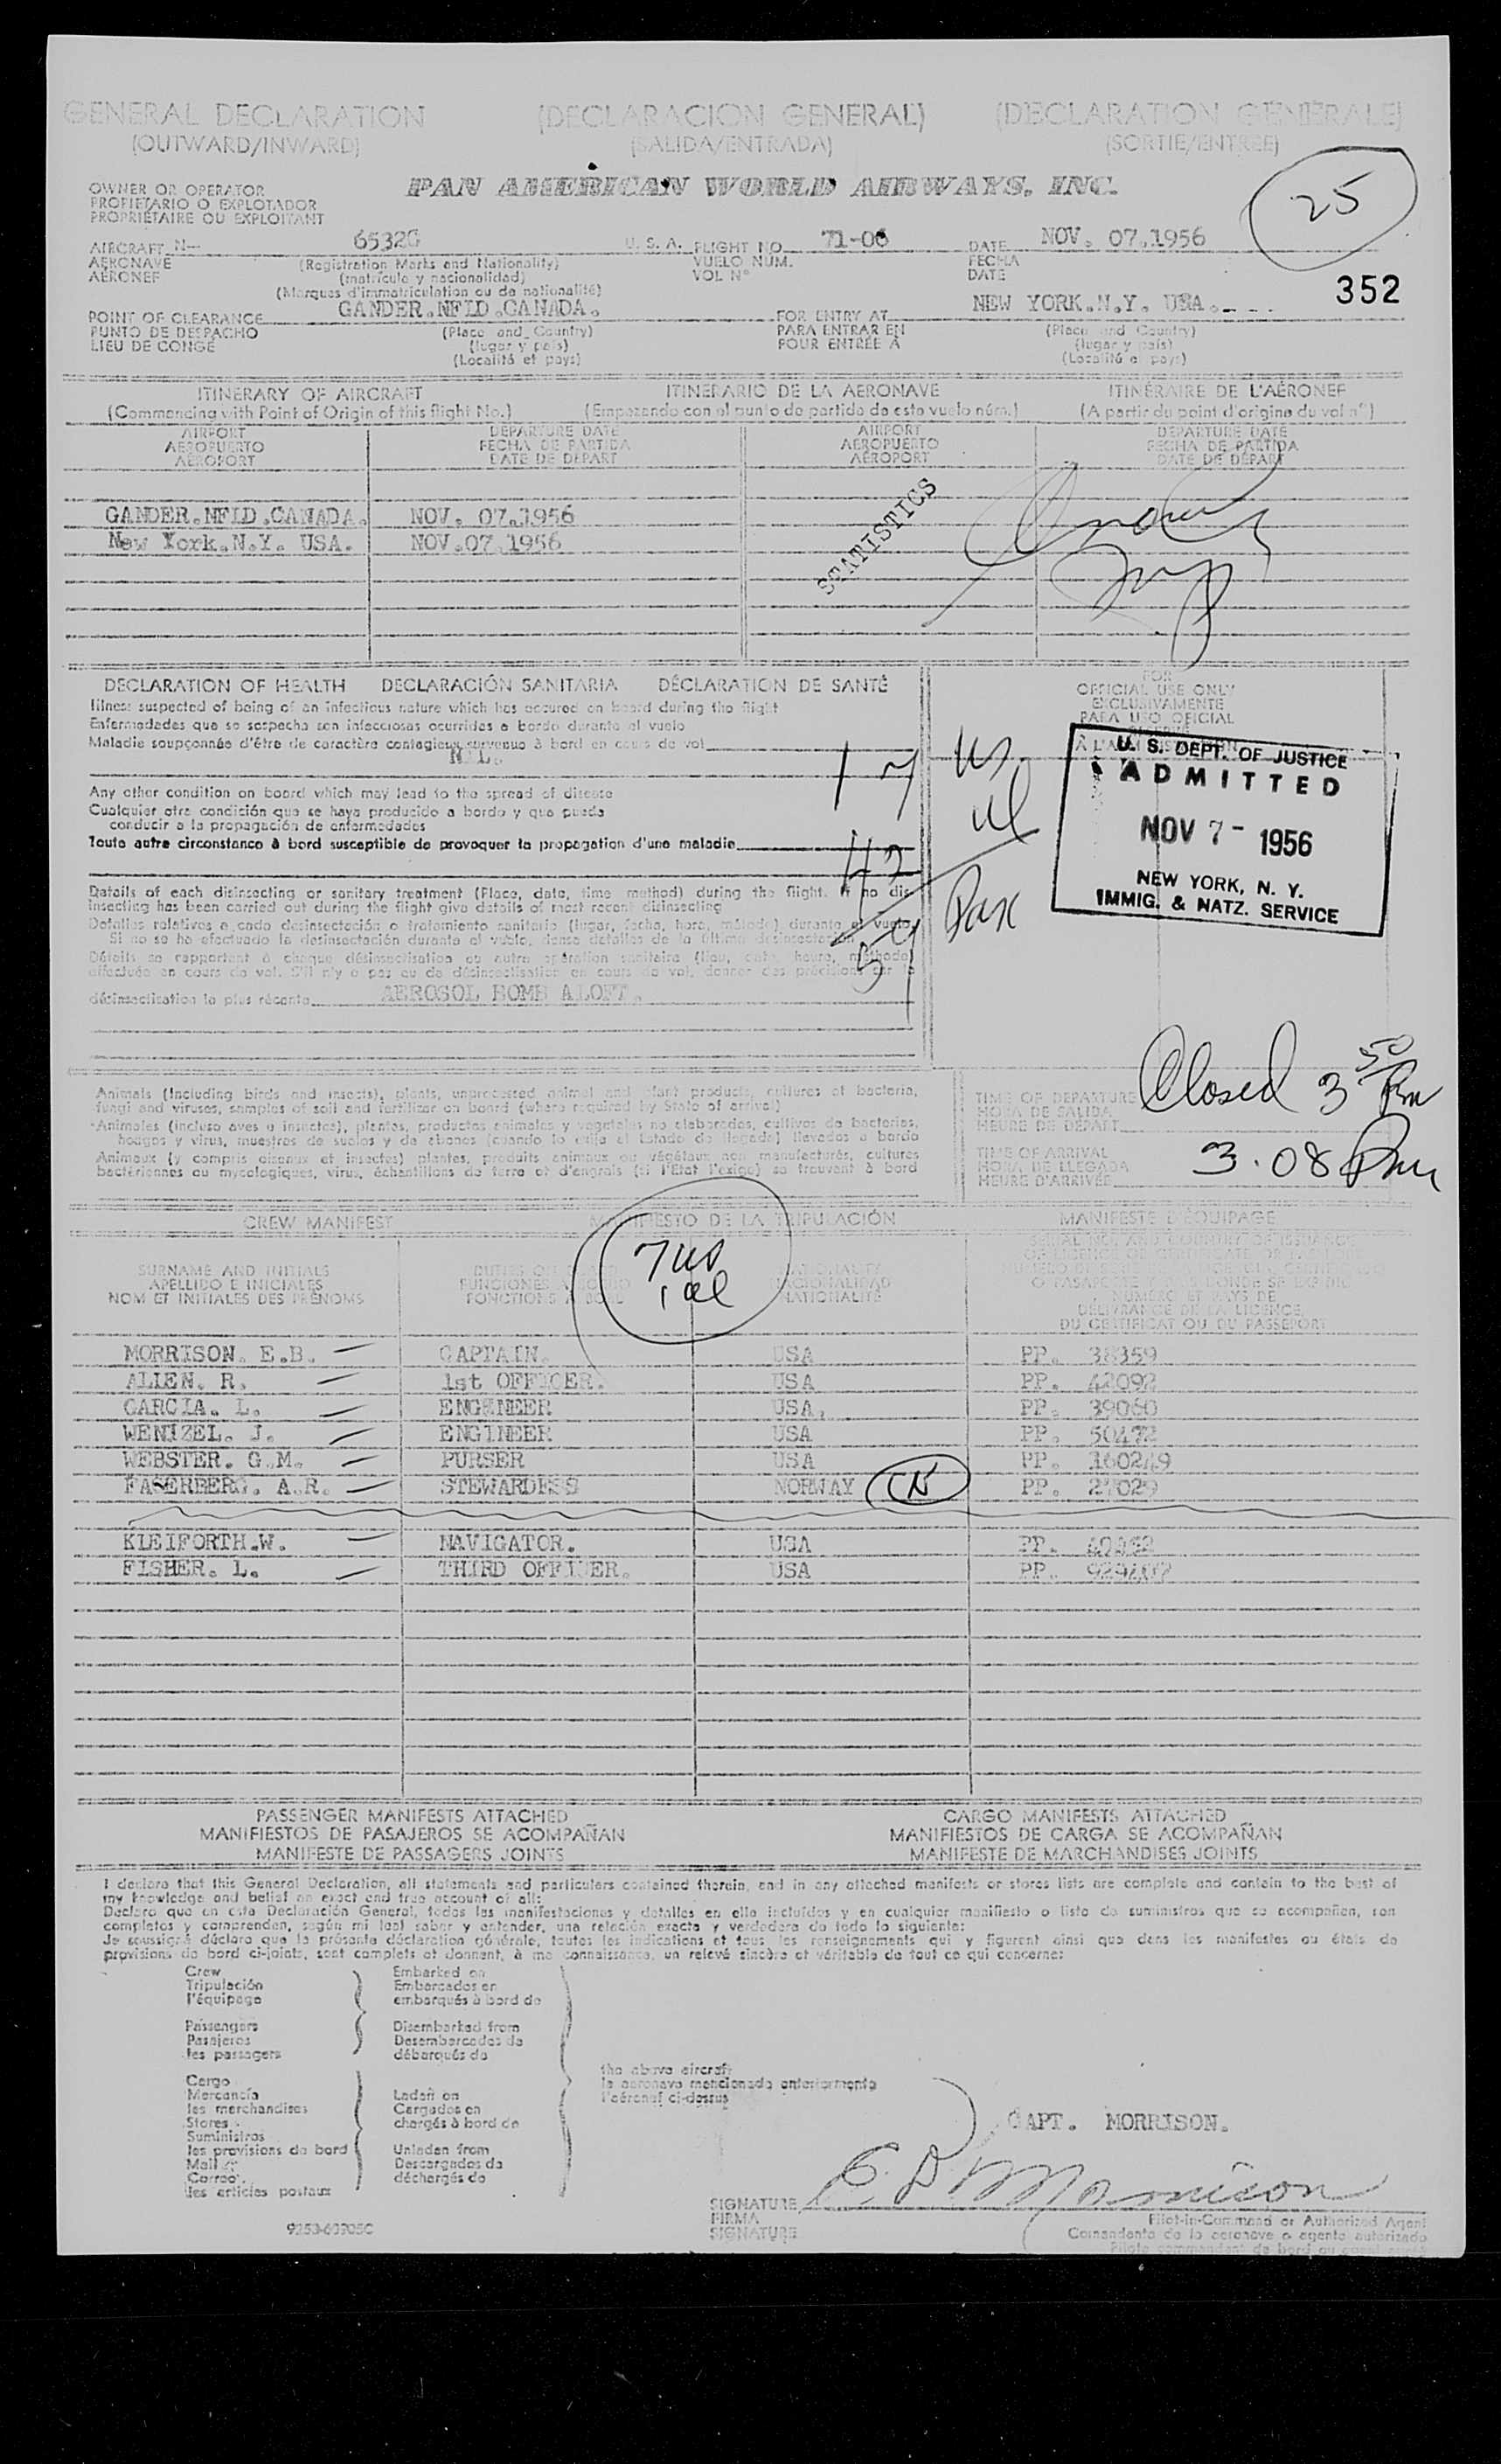 GENERAL DECLARATION (DECLARACION GENERAL) (DECLARATION GENERALE)
(OUTWARD/INWARD) (SALIDA/ENTRADA) (SORTIE/ENTREE)
25
OWNER OR OPERATOR PAN AMERICAN WORLD AIRWAYS, INC.
PROPIETARIO O EXPLOTADOR
PROPRIÉTAIRE OU EXPLOITANT
AIRCRAFT N- 6532C U. S. A. FLIGHT NO. 71-06 DATE NOV. 07.1956
AERONAVE (Registration Marks and Nationality) VUELO NUM. FECHA
AÉRONEF (matrícula y nacionalidad) VOL Nº DATE
(Marques d'immatriculation ou de nationalité) 352
POINT OF CLEARANCE GANDER.NFLD.CANADA. FOR ENTRY AT NEW YORK.N.Y. USA.
PUNTO DE DESPACHO (Place and Country) PARA ENTRAR EN (Place and Country)
LIEU DE CONGÉ (lugar y país) POUR ENTRÉE A (lugar y país)
(Localité et pays) (Localité e pays)
ITINERARY OF AIRCRAFT ITINERARIO DE LA AERONAVE ITINÉRAIRE DE L'AÉRONEF
(Commencing with Point of Origin of this flight No.) (Empezando con el punto de partida de este vuelo núm.) (A partir du point d'origine du vol nº)
AIRPORT DEPARTURE DATE AIRPORT DEPARTURE DATE
AEROPUERTO FECHA DE PARTIDA AEROPUERTO FECHA DE PARTIDA
AÉROPORT DATE DE DÉPART AÉROPORT DATE DE DÉPART
GANDER.NFLD.CANADA. NOV. 07.1956
New York.N.Y. USA. NOV.07.1956
STATISTICS
DECLARATION OF HEALTH DECLARACIÓN SANITARIA DÉCLARATION DE SANTÉ
Illness suspected of being of an infectious nature which has occured on board during the flight
Enfermedades que se sospecha son infecciosas ocurridas a bordo durante el vuelo
Maladie soupçonnée d'être de caractère contagieux survenue à bord en cours de vol
NIL.
FOR
OFFICIAL USE ONLY
EXCLUSIVAMENTE
PARA USO OFICIAL
U. S. DEPT. OF JUSTICE
ADMITTED
NOV 7 - 1956
NEW YORK, N. Y.
IMMIG. & NATZ. SERVICE
17 us
42 al
59 Pax
Any other condition on board which may lead to the spread of disease
Cualquier otra condición que se haya producido a bordo y que pueda
conducir a la propagación de enfermedades
Toute autre circonstance à bord susceptible de provoquer la propagation d'une maladie
Details of each disinsecting or sanitary treatment (Place, date, time method) during the flight. If no dis-
insecting has been carried out during the flight give details of most recent disinsecting
Detalles relativos a cada desinsectación o tratamiento sanitario (lugar, fecha, hora, método) durante el vuelo.
Si no se ha efectuado la desinsectación durante el vuelo, dense detalles de la última desinsectación
Détails se rapportant à chaque désinsectisation ou autre opération sanitaire (lieu, date, heure, méthode)
effectuée en cours de vol. S'il n'y a pas eu de désinsectisation en cours de vol, donner des précisions sur la
désinsectisation la plus récente AEROSOL BOMB ALOFT.
Animals (Including birds and insects), plants, unprocessed animal and plant products, cultures of bacteria,
fungi and viruses, samples of soil and fertilizer on board (where required by State of arrival)
Animales (incluso aves o insectos), plantas, productos animales y vegetales no elaborados, cultivos de bacterias,
hongos y virus, muestras de suelos y de abonos (cuando lo exija el Estado de llegada) llevados a bordo
Animaux (y compris oiseaux et insectes) plantes, produits animaux ou végétaux non manufacturés, cultures
bactériennes ou mycologiques, virus, échantillons de terre et d'engrais (si l'Etat l'exige) se trouvant à bord
TIME OF DEPARTURE Closed 3 50 Pm
HORA DE SALIDA
HEURE DE DÉPART
TIME OF ARRIVAL 3.08 Pm
HORA DE LLEGADA
HEURE D'ARRIVÉE
CREW MANIFEST MANIFIESTO DE LA TRIPULACIÓN MANIFESTE D'ÉQUIPAGE
7 us
1 al
SURNAME AND INITIALS
APELLIDO E INICIALES FUNCIONES A BORDO NACIONALIDAD
NOM ET INITIALES DES PRÉNOMS FONCTIONS A BORD NATIONALITÉ
NUMÉRO ET PAYS DE
DÉLIVRANCE DE LA LICENCE,
DU CERTIFICAT OU DU PASSEPORT
MORRISON. E.B. CAPTAIN. USA PP. 38359
ALLEN. R. 1st OFFICER. USA PP. 42092
GARCIA. L. ENGINEER USA. PP. 39060
WENTZEL. J. ENGINEER USA PP. 50472
WEBSTER. G.M. PURSER USA PP. 160249
FASERBERG. A.R. STEWARDESS NORWAY PP. 27029
KLEIFORTH.W. NAVIGATOR. USA PP.
FISHER. L. THIRD OFFICER. USA PP.
PASSENGER MANIFESTS ATTACHED CARGO MANIFESTS ATTACHED
MANIFIESTOS DE PASAJEROS SE ACOMPAÑAN MANIFIESTOS DE CARGA SE ACOMPAÑAN
MANIFESTE DE PASSAGERS JOINTS MANIFESTE DE MARCHANDISES JOINTS
I declare that this General Declaration, all statements and particulars contained therein, and in any attached manifests or stores lists are complete and contain to the best of
my knowledge and belief an exact and true account of all:
Declaro que en esta Declaración General, todas las manifestaciones y detalles en ella incluídos y en cualquier manifiesto o lista de suministros que se acompañan, son
completos y comprenden, según mi leal saber y entender, una relación exacta y verdadera de todo lo siguiente:
Je soussigné déclare que la présente déclaration générale, toutes les indications et tous les renseignements qui y figurent ainsi que dans les manifestes ou états de
provisions de bord ci-joints, sont complets et donnent, à ma connaissance, un relevé sincère et véritable de tout ce qui concerne:
Crew Embarked on
Tripulación Embarcados en
l'équipage embarqués à bord de
Passengers Disembarked from
Pasajeros Desembarcados de
les passagers débarqués de
the above aircraft
la aeronave mencionada anteriormente
l'aéronef ci-dessus
Cargo
Mercancía Laden on
les marchandises Cargados en
Stores chargés à bord de
Suministros
les provisions de bord Unladen from
Mail Descargados de
Correo déchargés de
les articles postaux
CAPT. MORRISON.
SIGNATURE E. B. Morrison
FIRMA Pilot-in-Command or Authorized Agent
SIGNATURE Comandante de la aeronave o agente autorizado